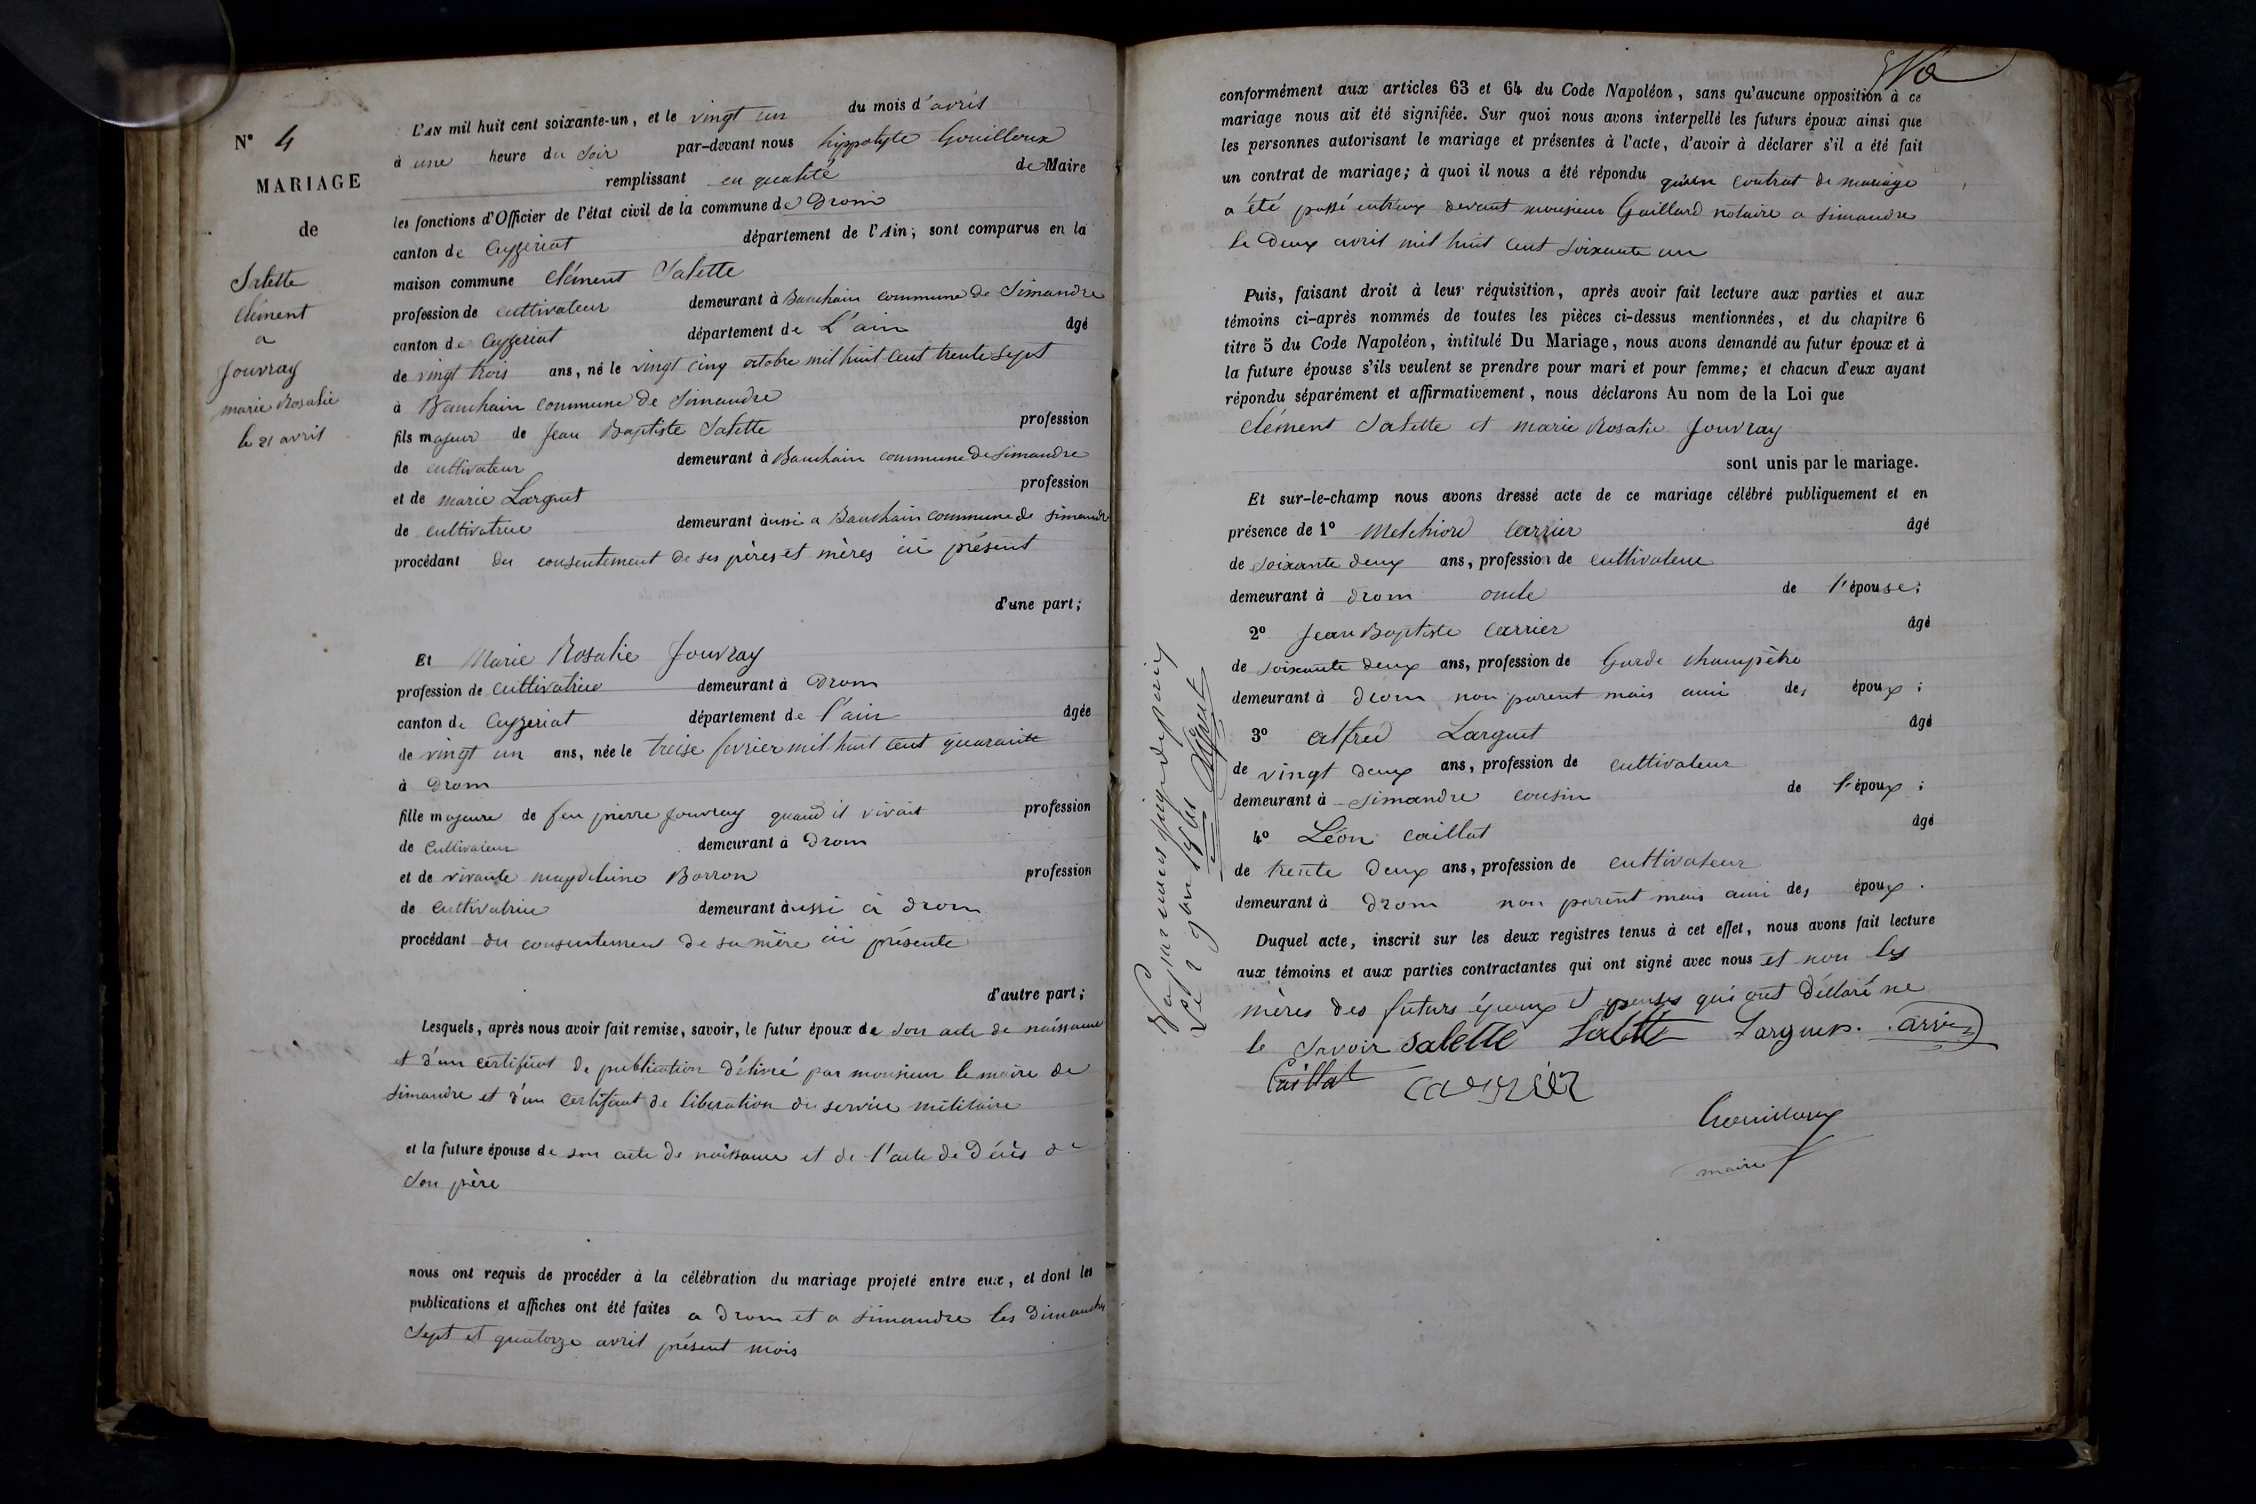 N° 4
MARIAGE
de
Salette
Clément
a
Jouvray
marie Rosalie
le 21 avril
L'AN mil huit cent soixante-un, et le vingt un du mois d'avril
à une heure du soir par-devant nous hyppolyte Gouilloux
remplissant en qualité de Maire
les fonctions d'Officier de l'état civil de la commune de Drom
canton de Ceyzeriat département de l'Ain; sont comparus en la
maison commune Clément Salette
profession de cultivateur demeurant à Banchain commune de Simandre
canton de Ceyzeriat département de L'ain âgé
de vingt trois ans, né le vingt cinq octobre mil huit cent trente sept
à Banchain commune de Simandre
fils majeur de Jean Baptiste Salette profession
de cultivateur demeurant à Banchain commune de Simandre
et de marie Larguet profession
de cultivatrice demeurant aussi a Banchain commune de simandre
procédant du consentement de ses pères et mères ici présent
d'une part;
Et Marie Rosalie Jouvray
profession de cultivatrice demeurant à Drom
canton de Ceyzeriat département de l'ain âgée
de vingt un ans, née le treise fevrier mil huit cent quarante
à Drom
fille majeure de feu pierre Jouvray quand il vivait profession
de Cultivateur demeurant à Drom
et de vivante magdeleine Borron profession
de Cultivatrice demeurant aussi à drom
procédant du consentement de sa mère ici présente
d'autre part;
Lesquels, après nous avoir fait remise, savoir, le futur époux de son acte de naissance
et d'un certificat de publication délivré par monsieur le maire de
simandre et d'un certificat de liberation du service militaire
et la future épouse de son acte de naissance et de l'acte de Décès de
son père
nous ont requis de procéder à la célébration du mariage projeté entre eux, et dont les
publications et affiches ont été faites a Drom et a simandre les dimanches
sept et quatorze avril présent mois
conformément aux articles 63 et 64 du Code Napoléon, sans qu'aucune opposition à ce
mariage nous ait été signifiée. Sur quoi nous avons interpellé les futurs époux ainsi que
les personnes autorisant le mariage et présentes à l'acte, d'avoir à déclarer s'il a été fait
un contrat de mariage; à quoi il nous a été répondu qu'un contrat de mariage
a été passé entreux devant monsieur Gaillard notaire a simandre
le Deux avril mil huit cent soixante un
Puis, faisant droit à leur réquisition, après avoir fait lecture aux parties et aux
témoins ci-après nommés de toutes les pièces ci-dessus mentionnées, et du chapitre 6
titre 5 du Code Napoléon, intitulé Du Mariage, nous avons demandé au futur époux et à
la future épouse s'ils veulent se prendre pour mari et pour femme; et chacun d'eux ayant
répondu séparément et affirmativement, nous déclarons Au nom de la Loi que
Clément Salette et marie Rosalie Jouvray
sont unis par le mariage.
Et sur-le-champ nous avons dressé acte de ce mariage célébré publiquement et en
présence de 1° Melchiord Carrier âgé
de soixante deux ans, profession de cultivateur
demeurant à drom oncle de l'épouse;
2° Jean Baptiste Carrier âgé
de soixante deux ans, profession de Garde champêtre
demeurant à drom non parent mais ami des époux;
3° alfred Larguet âgé
de vingt deux ans, profession de cultivateur
demeurant à simandre cousin de l'époux;
4° Léon caillat âgé
de trente deux ans, profession de cultivateur
demeurant à drom non parent mais ami des époux.
Duquel acte, inscrit sur les deux registres tenus à cet effet, nous avons fait lecture
aux témoins et aux parties contractantes qui ont signé avec nous et non les
mères des futurs époux et epouses qui ont déclaré ne
le savoir salette Salette Larguet. Carrier
Caillat carrier
Gouilloux
maire